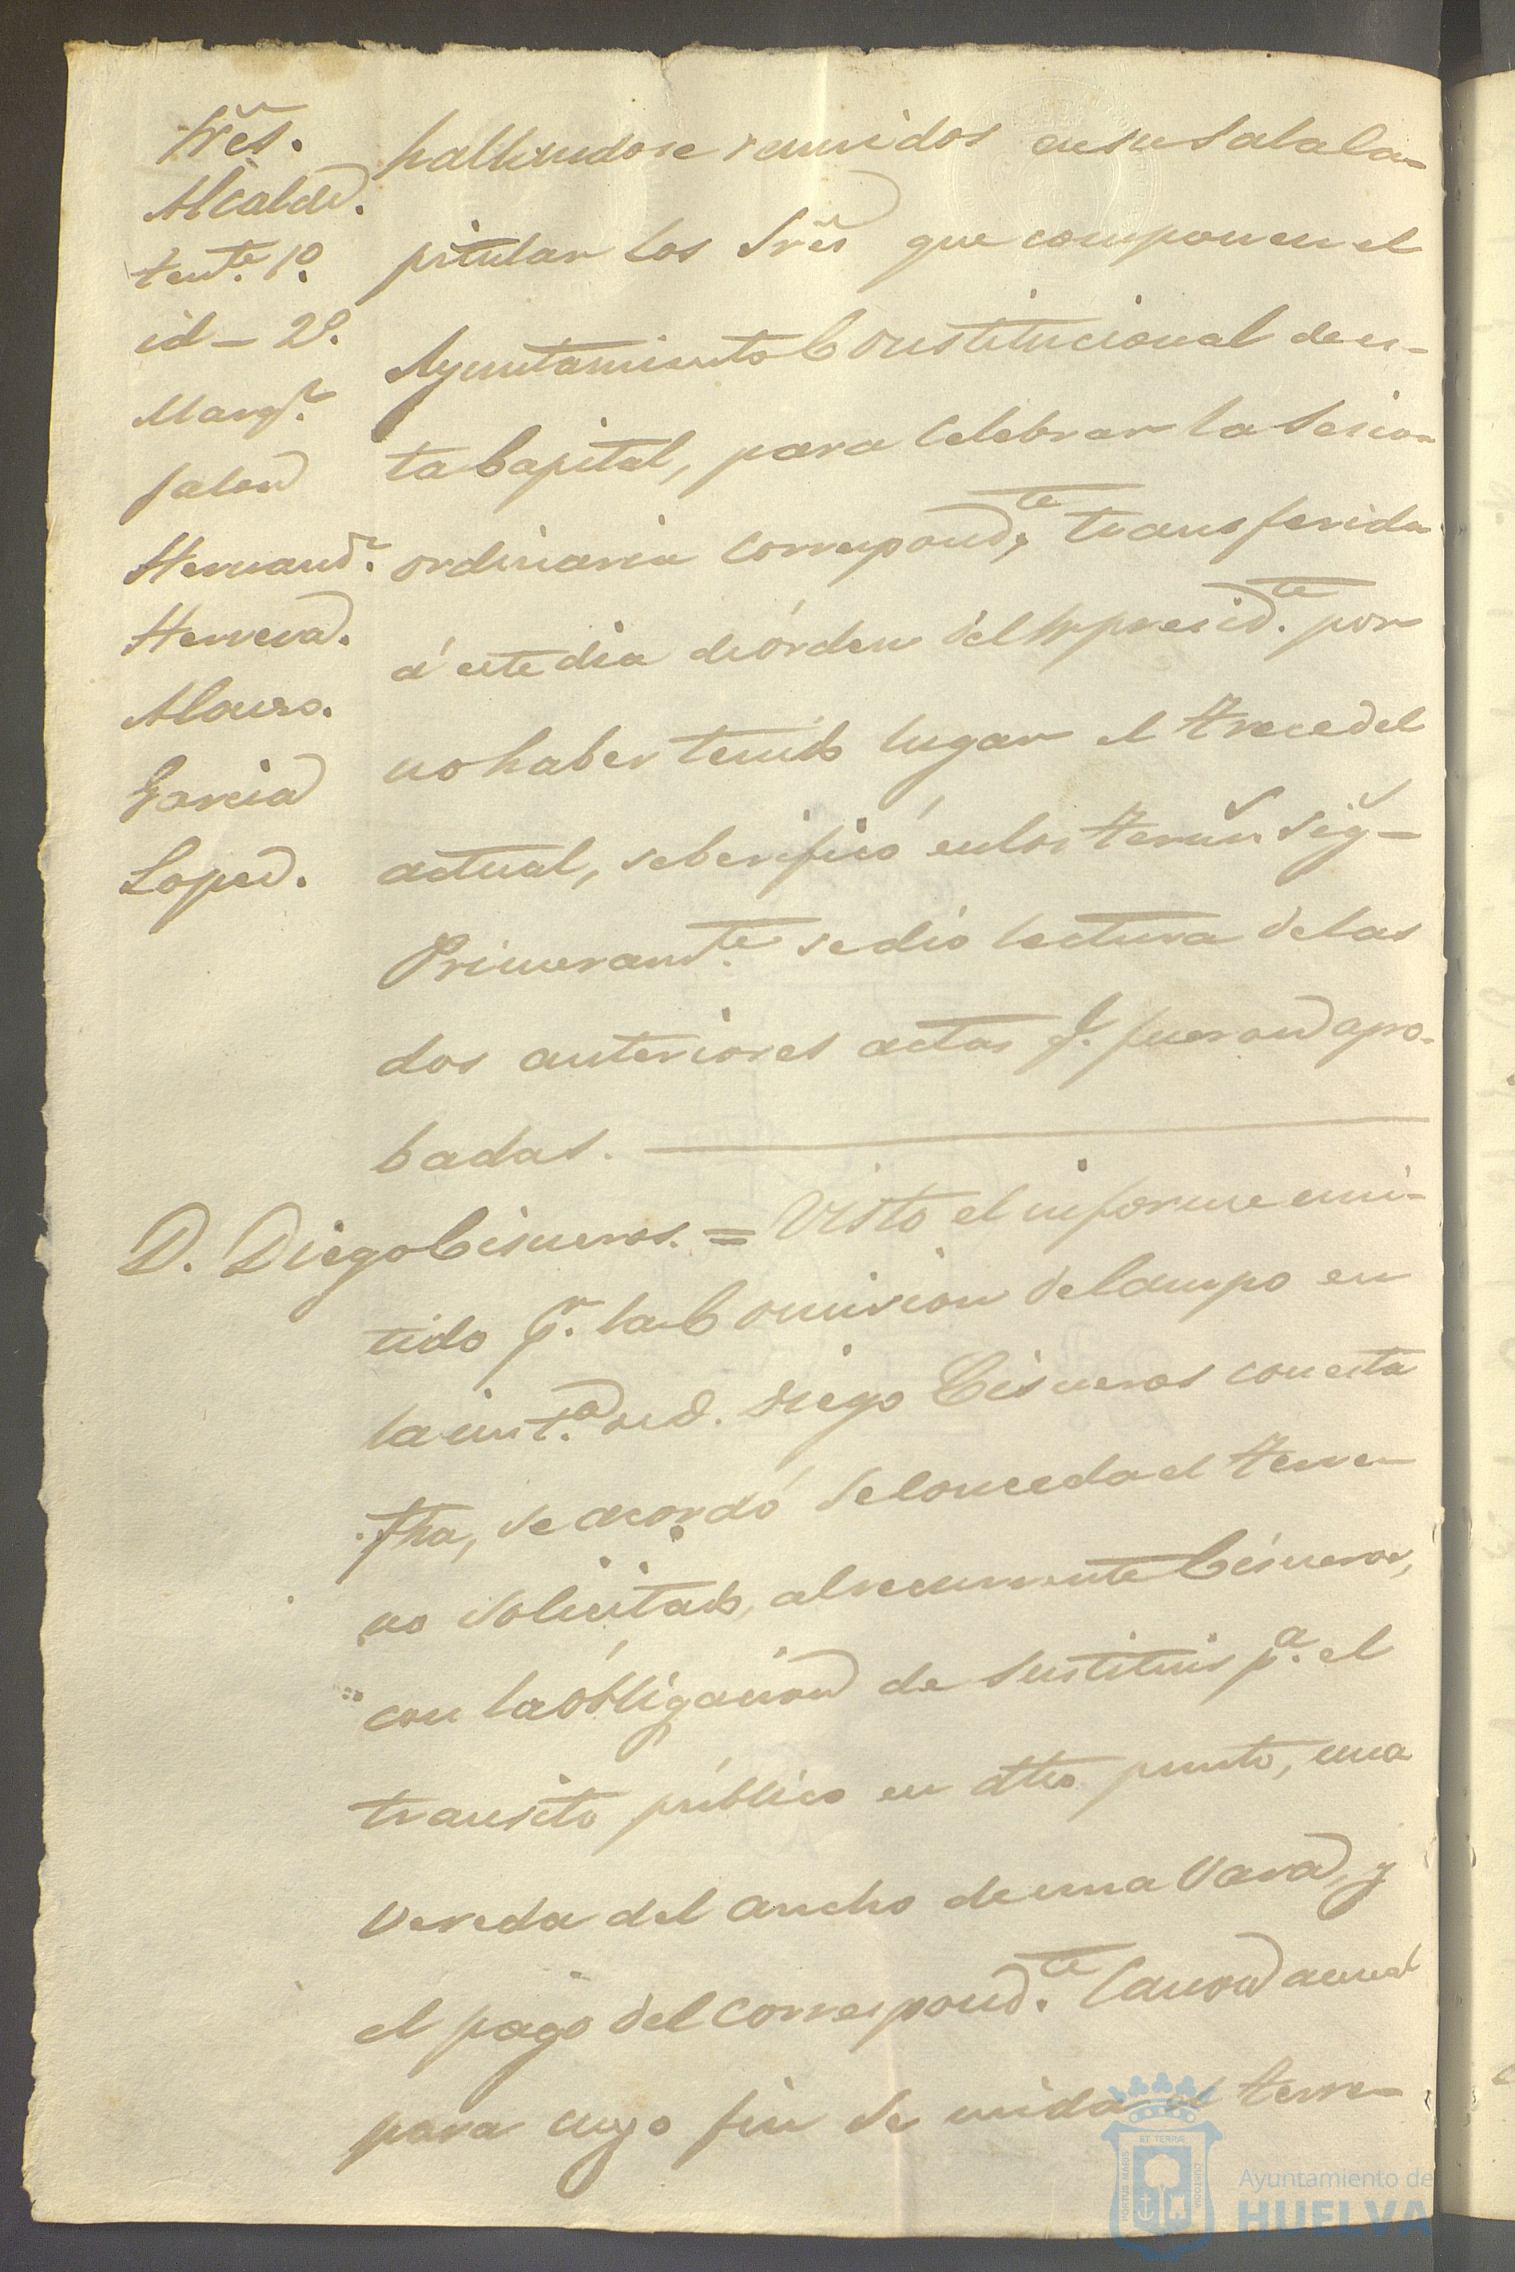 Sr̃es.
Alcalde.
tente. 1º.
id – 2º.
Marqz.
Salon
Hernandz.
Herrera.
Alonso.
Garcia
Lopez.
hallandose reunidos en su Sala Ca-
pitular los Sr̃es que componen el
Ayuntamiento Constitucional de es-
ta Capital, para celebrar la Sesion
ordinaria correspondte. transferida
á este dia de órden del Sr presidte. por
no haber tenido lugar el trece del
actual, se berificó en los termũ sig̃-
Primeramte. se dió lectura de las
dos anteriores actas q. fueron apro-
badas.
D. Diego Cisneros. = Visto el informe emi-
tido pr. la Comision del Campo en
la instª. de D. Diego Cisneros con esta
fha, se acordó se conceda el terre-
no solicitado, al recurrente Cisneros,
con la obligacion de sustituir pª. el
transito público en otro punto, una
vereda del ancho de una vara, y
el pago del correspondte. Canon anual
para cuyo fin se mida el terre-
PORTUS MARIS ET TERRÆ CUSTODIA
Ayuntamiento de
HUELVA